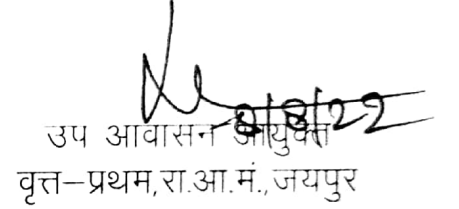 8/8/22
उप आवासन आयुक्त
वृत्त-प्रथम,रा.आ.मं.,जयपुर